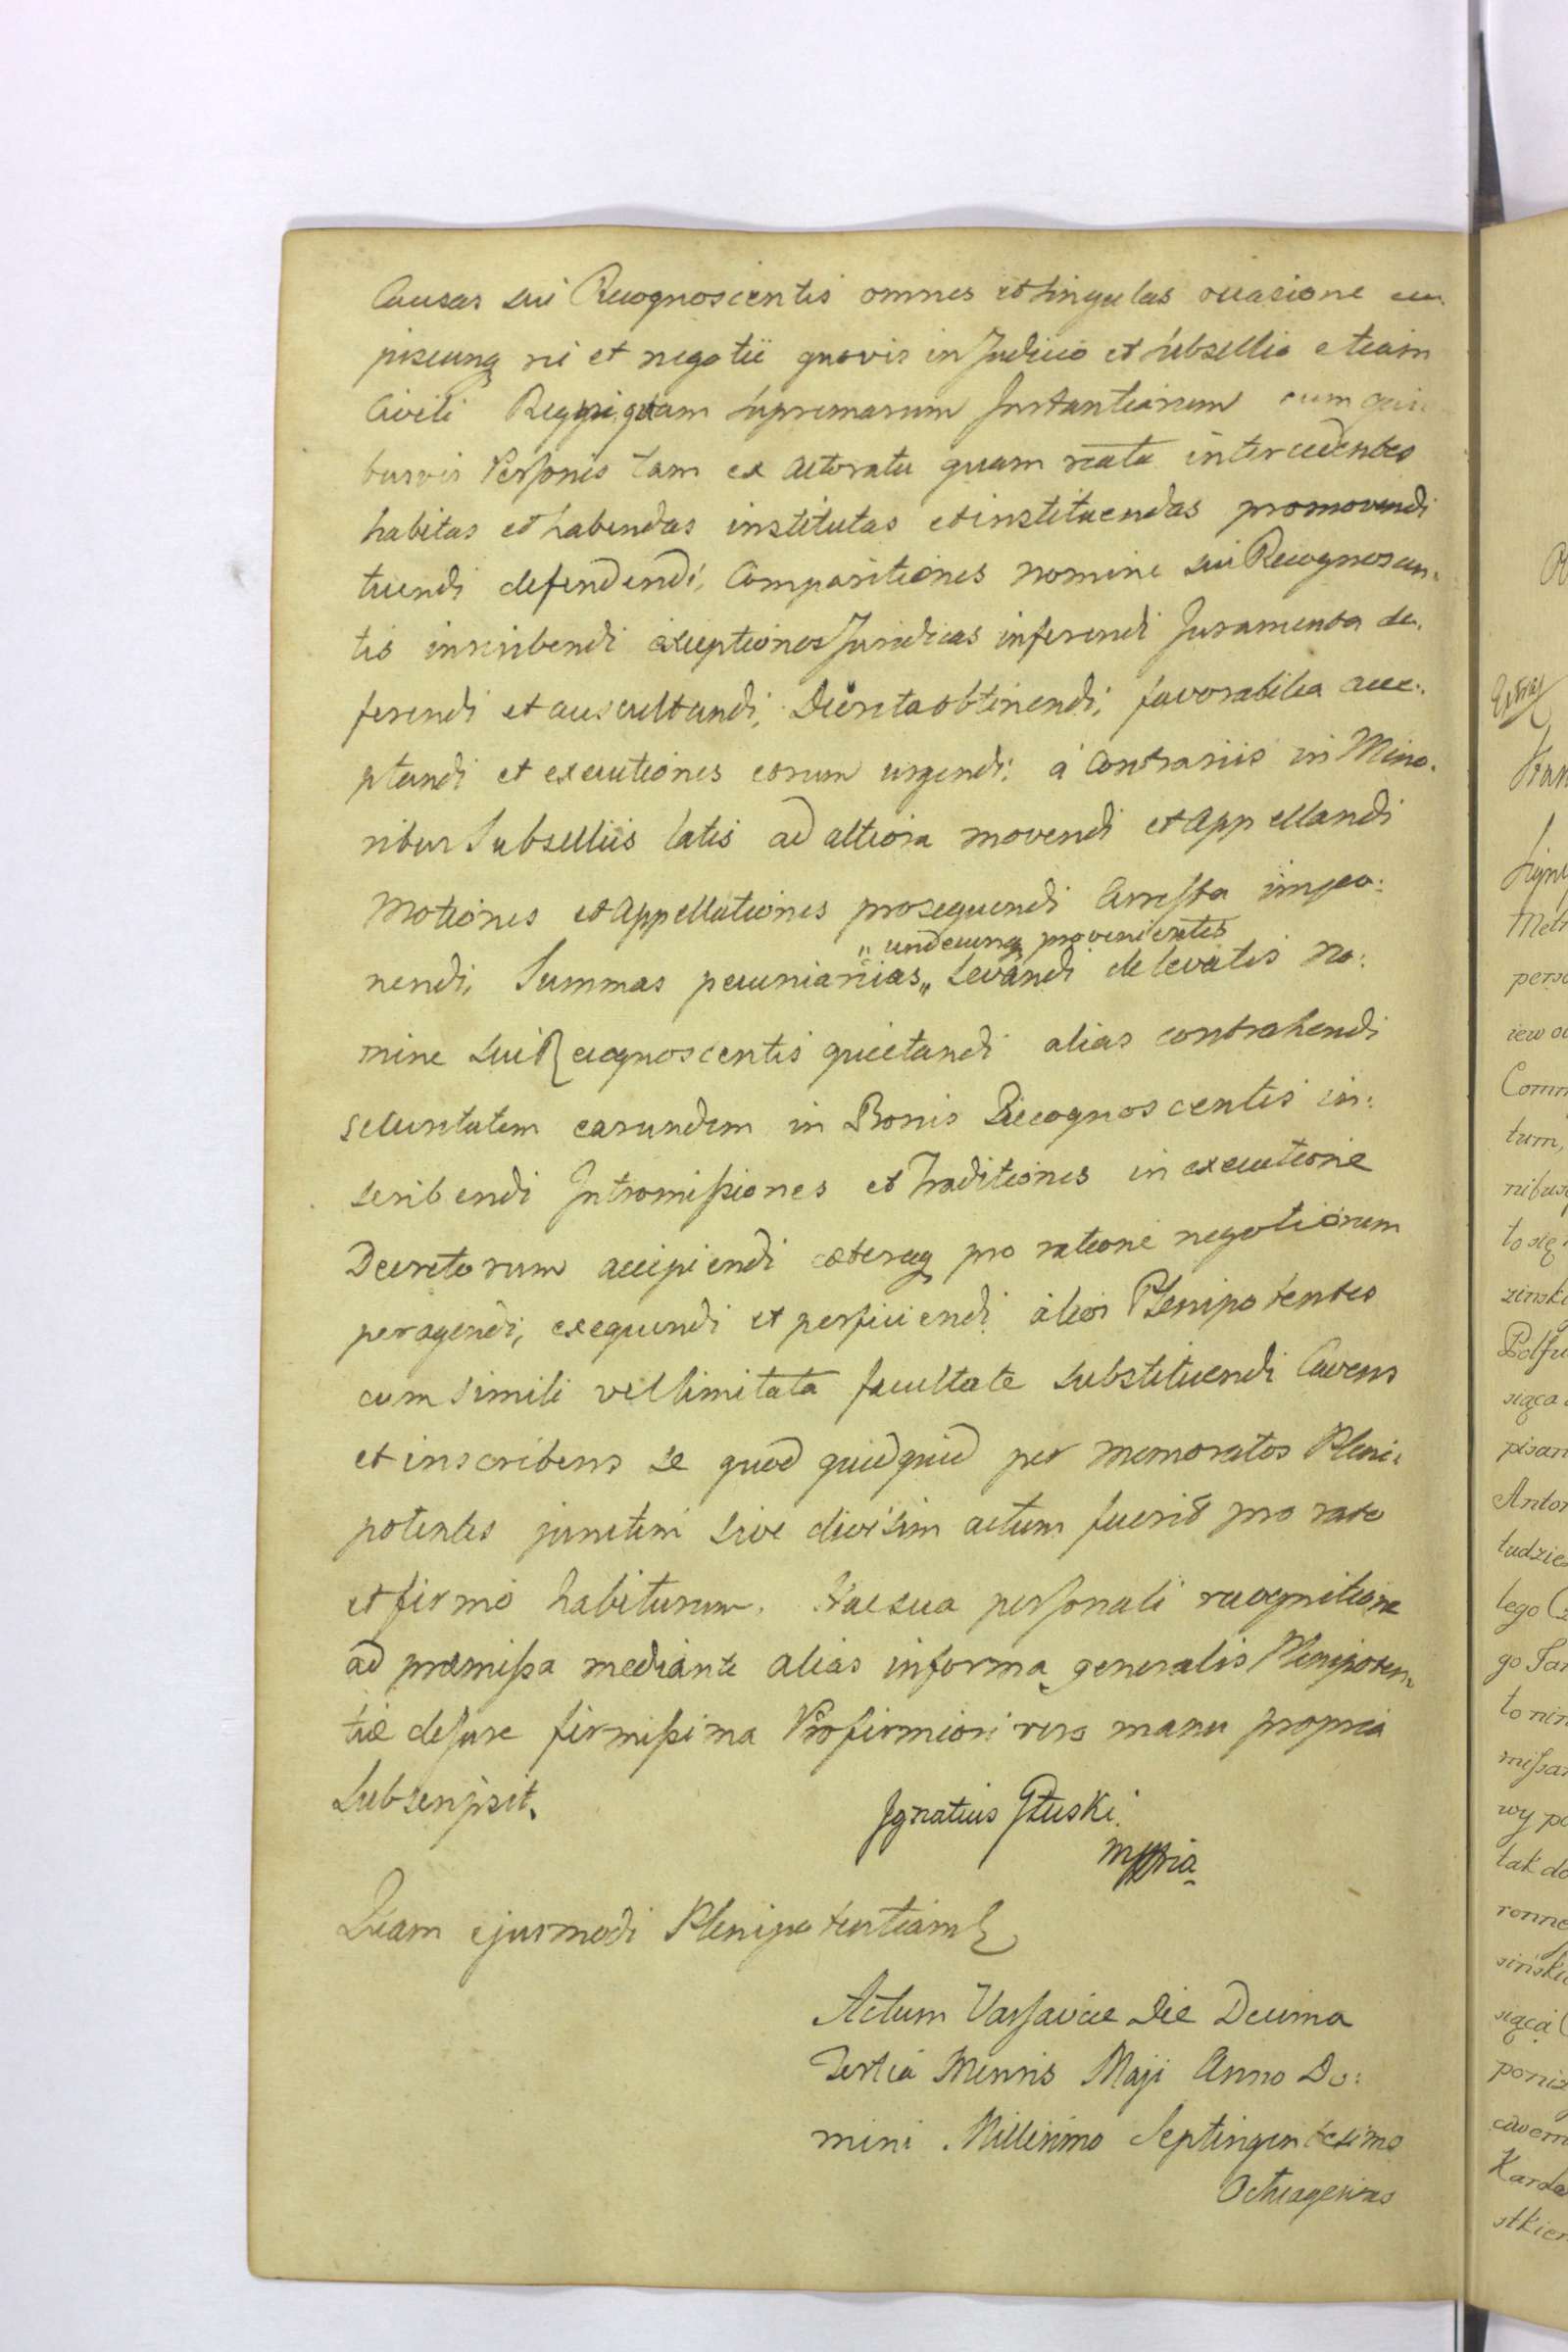 Causas sui Recognoscentis omnes et singulas occasione cu
piscunq rei et negotii quovis in Judicio et Subsellio etiam
Civili supremarum Instantiarum cum qui
busvis Personis tam ex Actoratu quam reatu intercedentes
habitas et habendas institutas et instituendas promovendi
tuendi defendendi, Comparitiones nomine sui Recognoscen.
tis inscribendi exceptiones Juridicas inferendi Juramenta de.
ferendi et auscultandi, Decreta obtinendi, favorabilia acce.
ptandi et executiones eorum urgendi, a Contrariis in Mino.
ribus Subselliis latis ad altiora movendi et Appellandi
Motiones et Appellationes prosequendi Arresta impo:
„ undecunq provenientes
nendi, Summas pecuniarias „ Levandi de levatis no:
mine sui Recognoscentis quietandi alias contrahendi
securitatem earundem in Bonis Recognoscentis in:
scribendi Intromissiones et Traditiones in executione
Decretorum accipiendi cæteraq pro ratione negotiorum
peragendi, exequendi et perficiendi alios Plenipotentes
cum simili vel limitata facultate substituendi Cavens
et inscribens se quod quidquid per memoratos Pleni:
potentes junctim sive divisim actum fuerit pro rato
et firmo habiturum. Hac sua personali recognitione
ad præmissa mediante alias in forma generalis Plenipoten
tiæ de Jure firmissima Pro firmiori vero manu propria
Subscripsit.
Ignatius Głuski
mppria
Quam ejusmodi Plenipotentiam
Actum Varsaviæ Die Decima
Tertia Mensis Maji Anno Do:
mini Millesimo Septingentesimo
Octuagesimo
Extra
Fran
Signi
Meln
perso
iew
Comm
tum,
nibusq
to się
zinski
Polsu
siąca
pisan
Anton
tudzie
lego
go Jan
to nin
missar
wy po
tak do
ronne
sinski
siąca
poniz
cavem
Karda
stkien